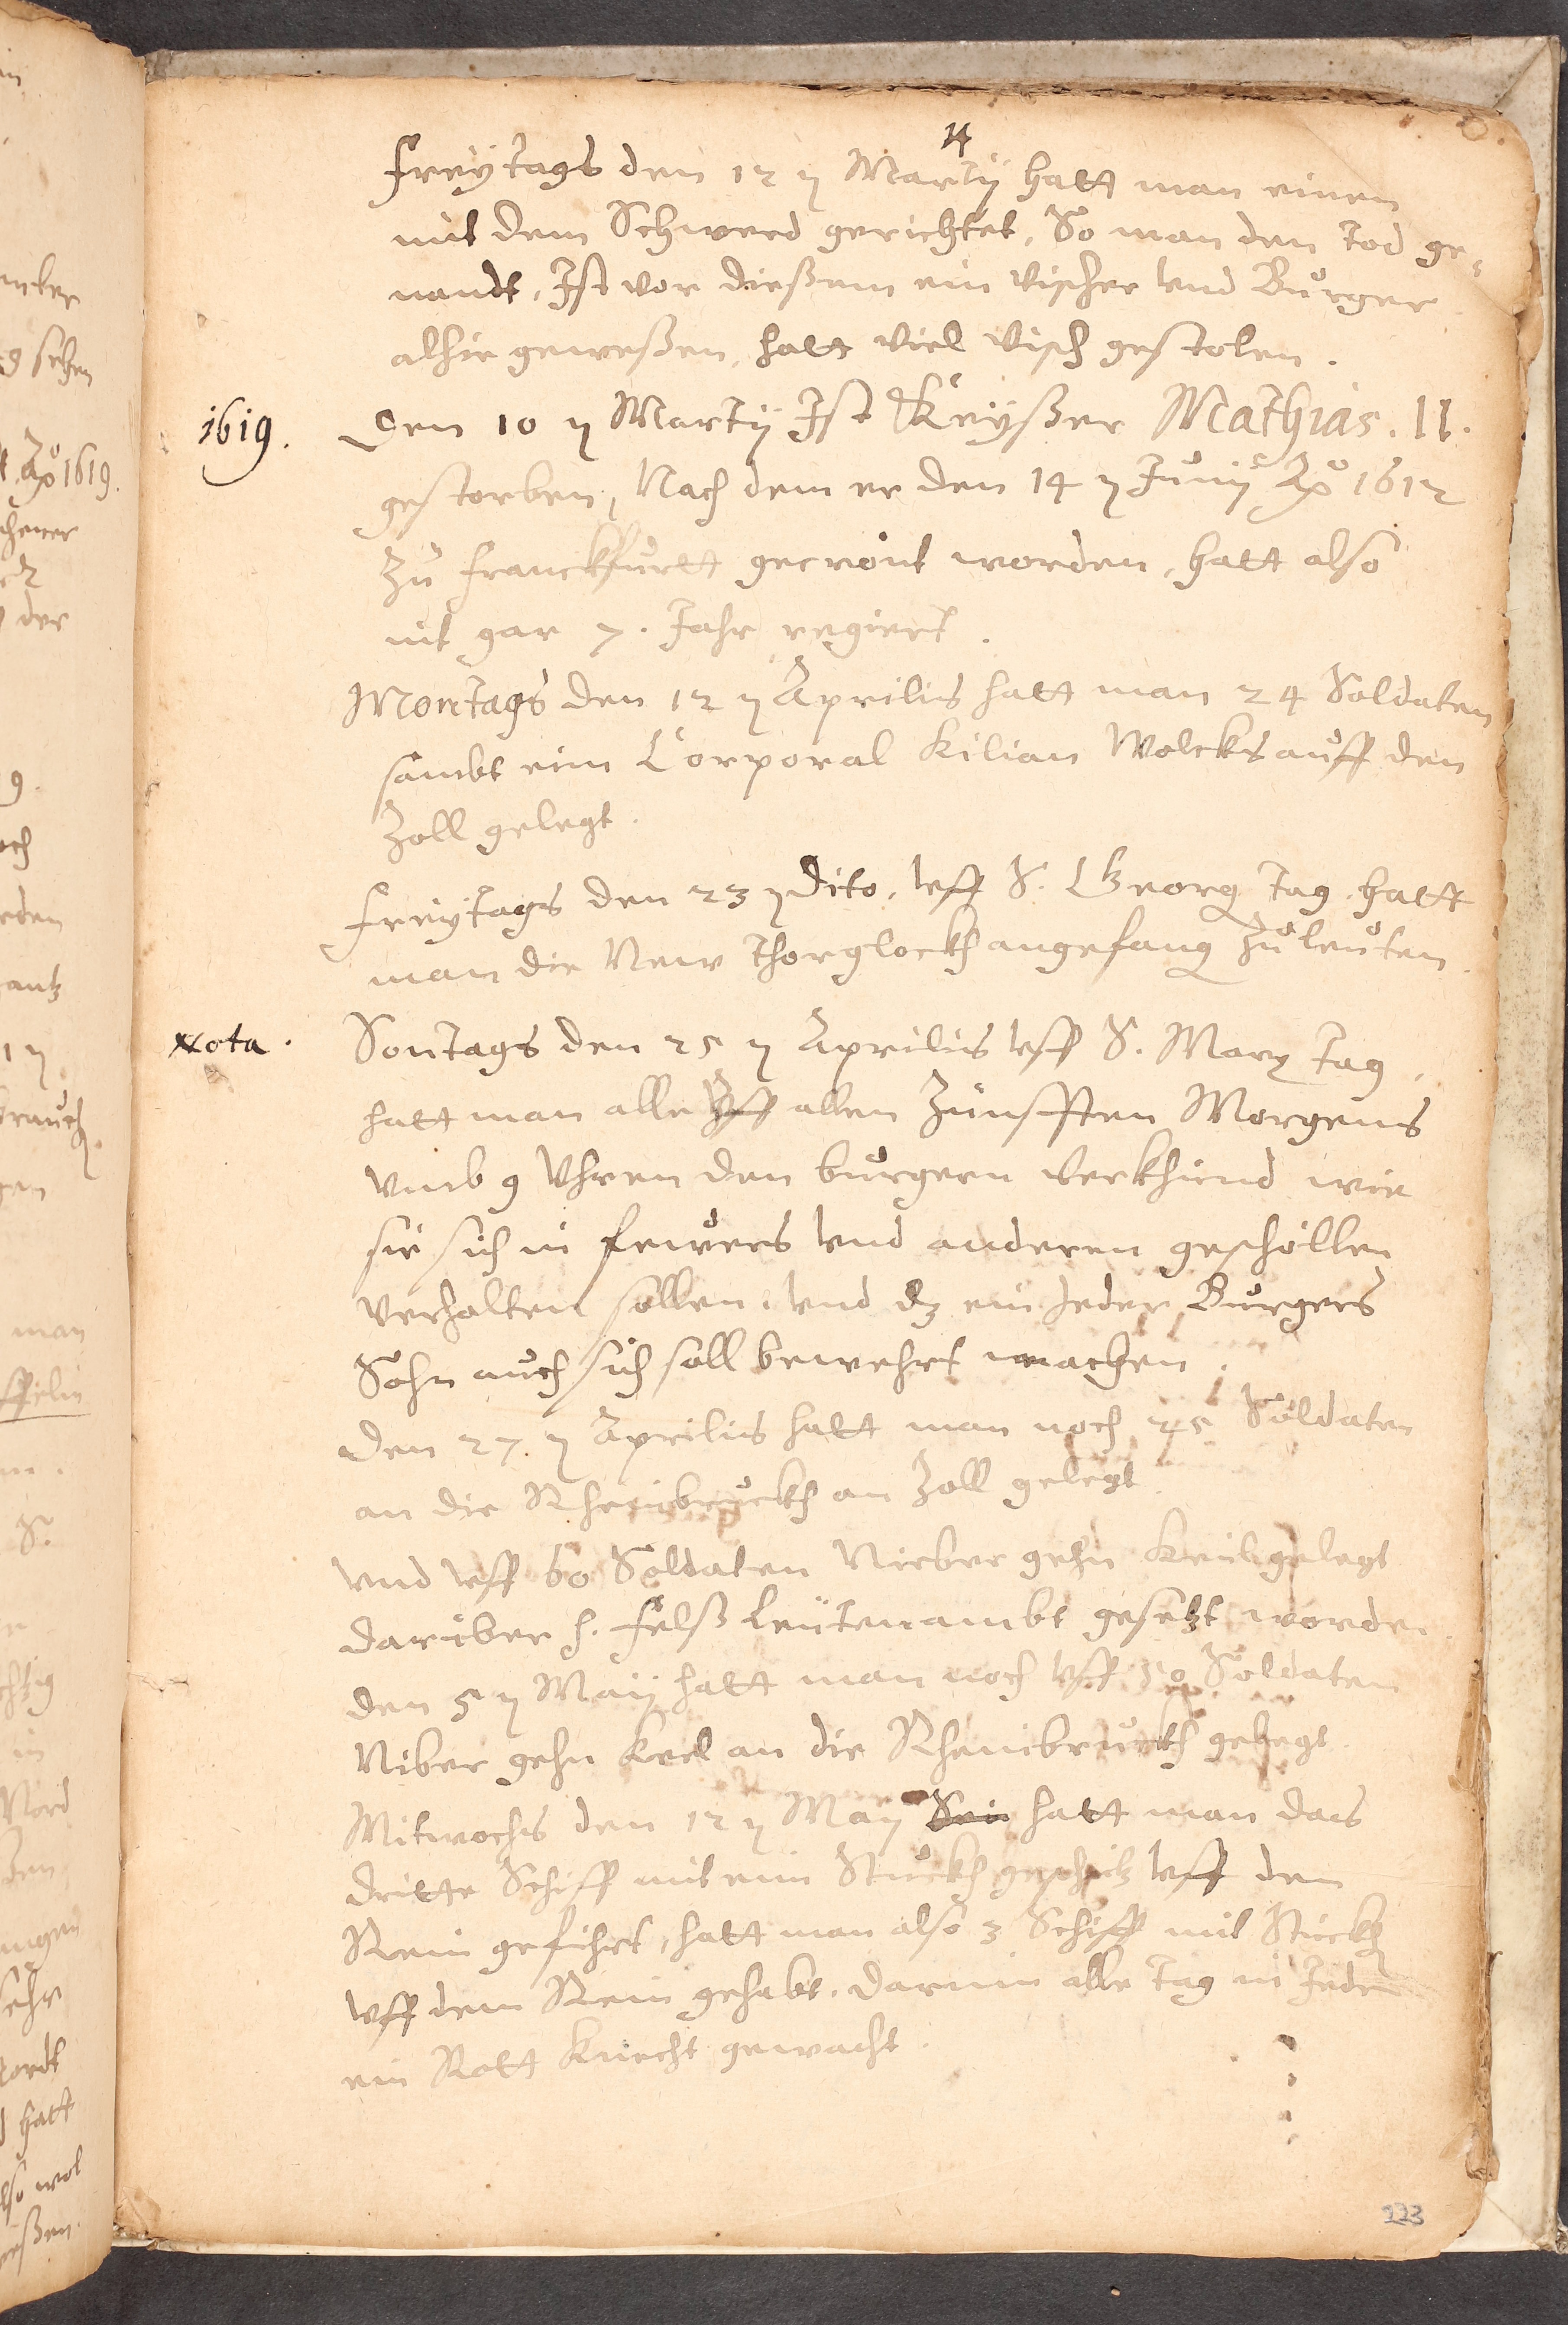 14
Freÿtags den 12 ꝫ Martÿ hatt man einen
mit dem Schwerd gerichtet, So man den Tod ge-
nandt, Ist vor dießem ein Vischer vnd Burger
alhie geweßen, hatt viel Visch gestolen.
1619. Den 10 ꝫ Martÿ Ist Keÿßer Mathias. II.
gestorben, Nach dem er den 14 ꝫ Junÿ Aō 1612
Zu Franckfurtt gecrönt worden, hatt also
nit gar 7. Jahr regiert.
Montags den 12 ꝫ Aprilis hatt man 24 Soldaten
sambt eim Corporal Kilian Wolcks auff den
Zoll gelegt.
Freÿtags den 23 ꝫ Dito, vff S. Georg Tag hatt
man die New Thorglockh angefang Zu leuten.
Nota. Sontags den 25 ꝫ Aprilis vff S. Marx Tag,
hatt man alle Vff allen Zünfften Morgens
vmb 9 Vhren den burgern verkhind wie
sie sich in Fewers vnd anderen geschöllen
verhalten sollen, vnd dz ein Jeder Burgers
Sohn auch sich soll bewehrt machen.
Den 27. ꝫ Aprilis hatt man noch 25 Soldaten
an die Rheinbruckh am Zoll gelegt.
Vnd vff 60 Soldaten Nieber gehn Keil gelegt
daruber h. Felß Leütenambt gesetzt worden.
den 5 ꝫ Maÿ hatt man noch vff 50 Soldaten
Niber gehn Keel an die Rheinbruckh gelegt.
Mitwochs den 12 ꝫ Maÿ Sein hatt man das
dritte Schiff mit eim Stuckh geschitz vff dem
Rein gefihrt, hatt man also 3 Schiff mit Stuckh
vff dem Rein gehabt, darinn alle Tag in Jedem
ein Rott Knecht gewacht.
223